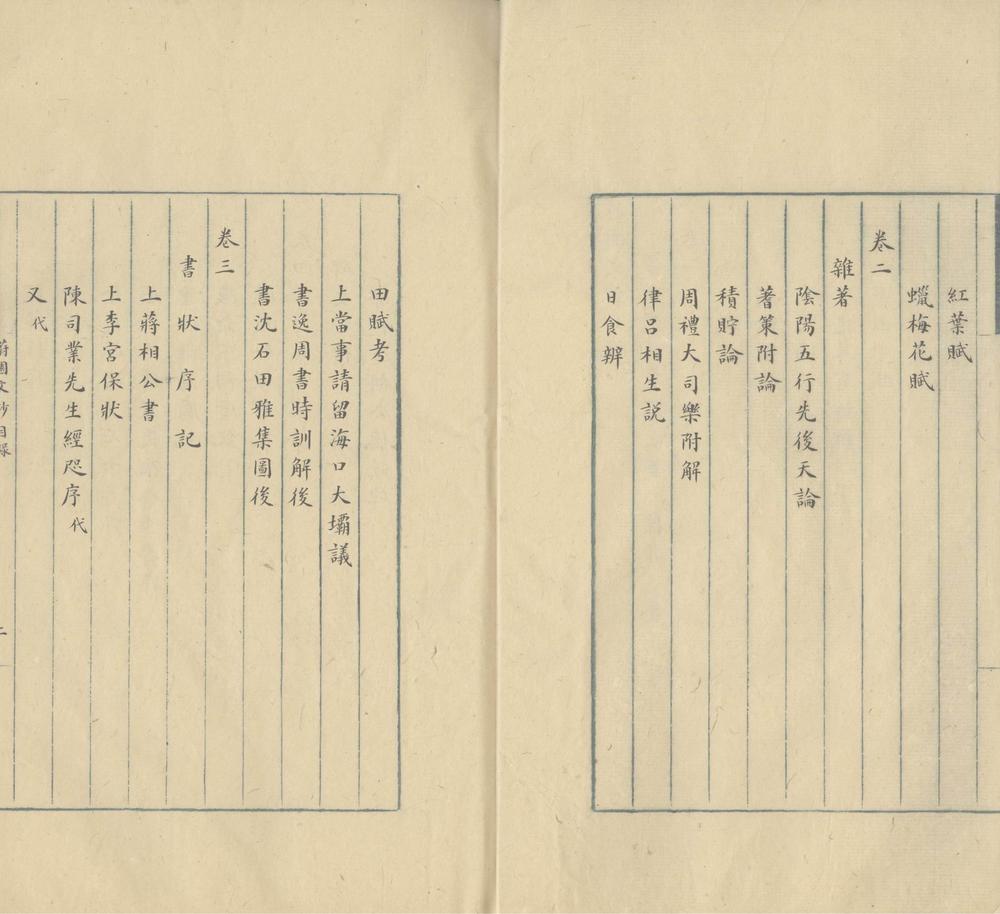 紅葉賦
蠟梅花賦
卷二
雜著
陰陽五行先後天論
蓍策附論
積貯論
周禮大司樂附解
律呂相生説
日食辨
田賦考
上當事請留海口大壩議
書逸周書時訓解後
書沈石田雅集圖後
卷三
書狀序記
上蔣相公書
上李宮保狀
陳司業先生經咫序代
又代
文鈔目録
二